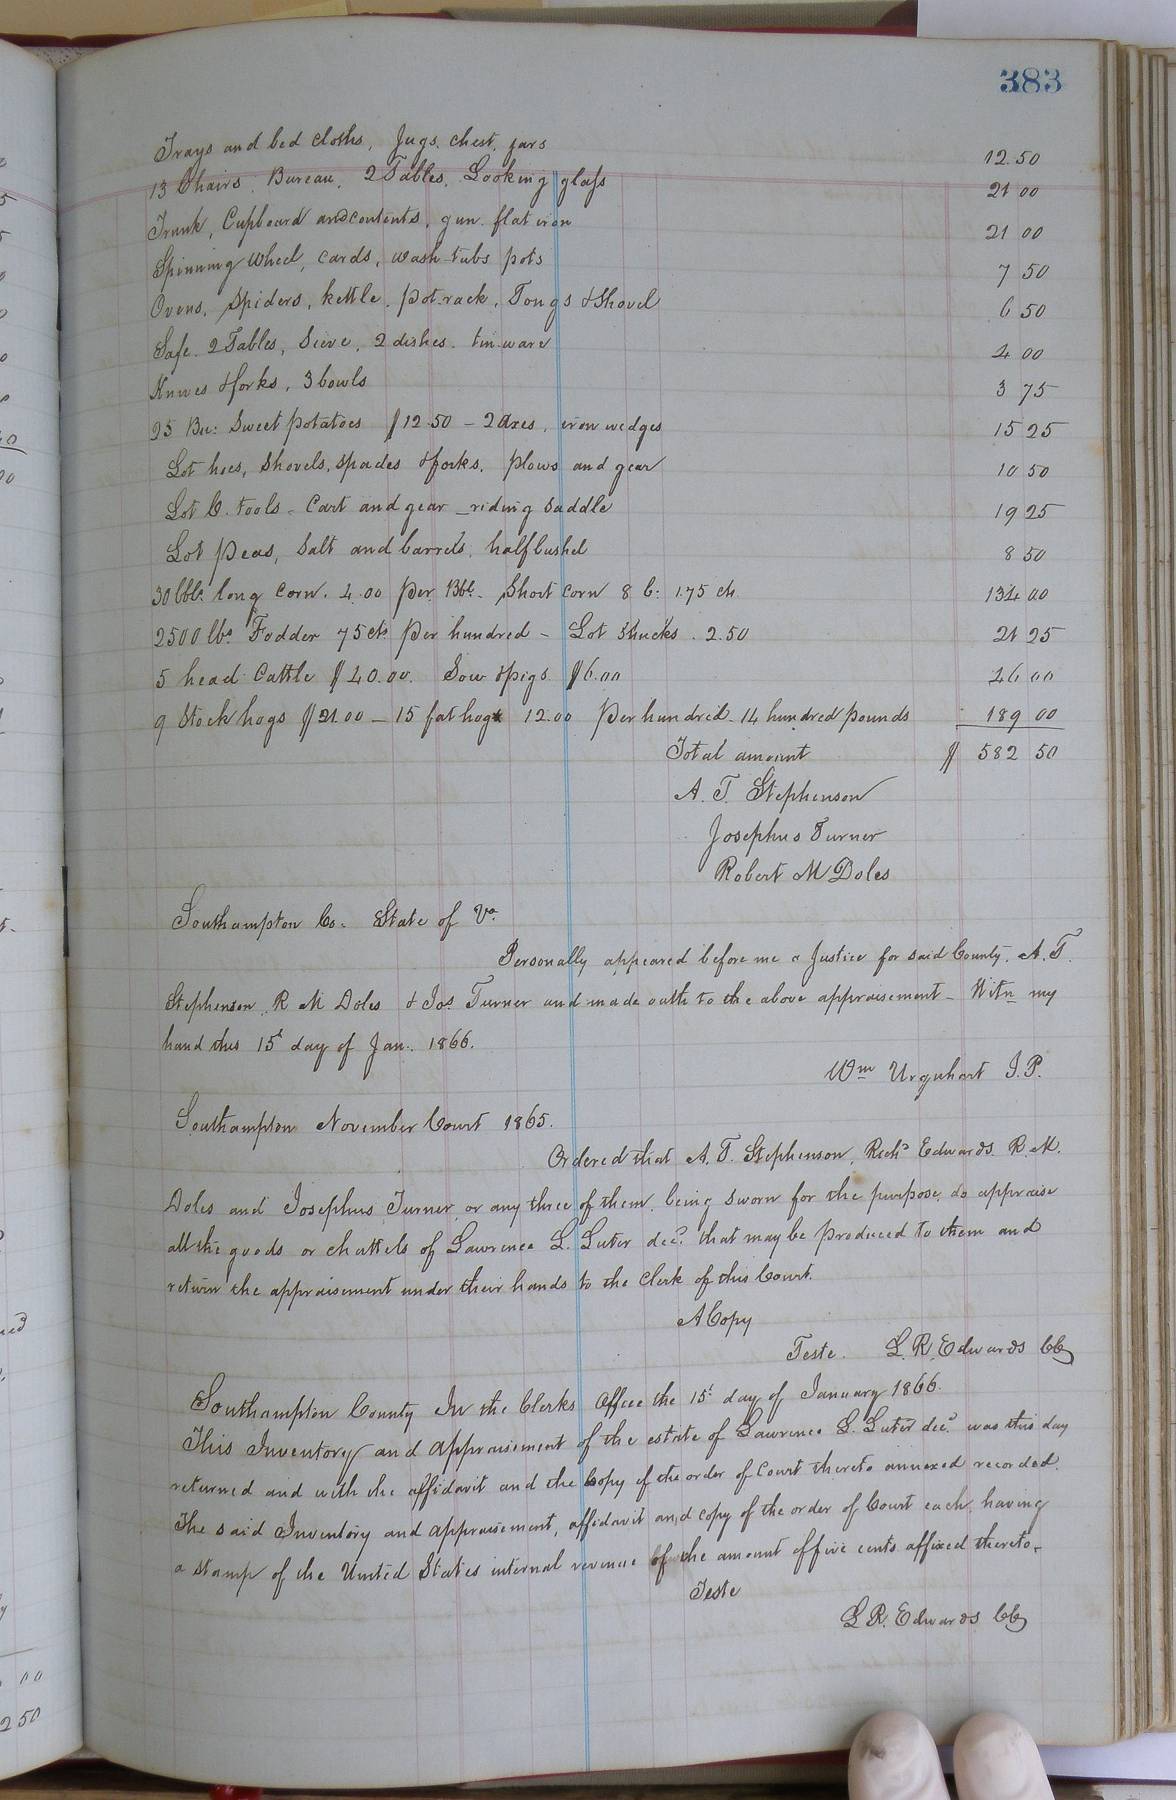 383
Trays and bed cloths, Jugs, chest, jars 12.50
13 Chairs. Bureau. 2 Tables. Looking glass 21 00
Trunk, Cupboard and contents, gun. flat iron 21 00
Spinning Wheel, cards, wash-tubs pots 7 50
Ovens, Spiders, kettle. pot-rack, Tongs & Shovel 6 50
Safe. 2 Tables, Sieve, 2 dishes. tin-ware 4 00
Knives & forks, 3 bowls 3 75
25 Bu: Sweet potatoes $12.50 - 2 axes, iron wedges 15 25
Lot hoes, Shovels, spades & forks, plows and gear 10 50
Lot C. tools - Cart and gear - riding saddle 19 25
Lot Peas, Salt and barrels, half bushel 8 50
30 bbls. long Corn. 4.00 per Bbl. Short Corn 8 b: 1.75 ch 134 00
2500 lbs. Fodder 75 cts. per hundred - Lot Shucks. 2.50 21 25
5 head Cattle $40.00. Sow & pigs $6.00 46 00
9 Stock hogs $21.00 - 15 fat hogs 12.00 per hundred - 14 hundred pounds 189 00
Total amount $ 582 50
A. T. Stephenson
Josephus Turner
Robert M Doles
Southampton Co: State of Va.
Personally appeared before me a Justice for said County. A. T.
Stephenson, R M Doles & Jos. Turner and made oath to the above appraisement - Witn my
hand this 15t day of Jan. 1866.
Wm Urquhart J.P.
Southampton November Court 1865.
Ordered that A. T. Stephenson, Richd Edwards. R. M.
Doles and Josephus Turner, or any three of them, being sworn for the purpose, do appraise
all the goods or chattels of Lawrence L. Luter decd. that may be produced to them and
return the appraisement under their hands to the Clerk of this Court.
A Copy
Teste. L. R. Edwards CC
Southampton County In the Clerks Office the 15t day of January 1866.
This Inventory and appraisement of the estate of Lawrence L. Luter decd. was this day
returned and with the affidavit and the Copy of the order of Court thereto annexed recorded.
The said Inventory and appraisement, affidavit and copy of the order of Court each having
a stamp of the United States internal revenue of the amount of five cents affixed thereto.
Teste
L. R. Edwards CC
00
250